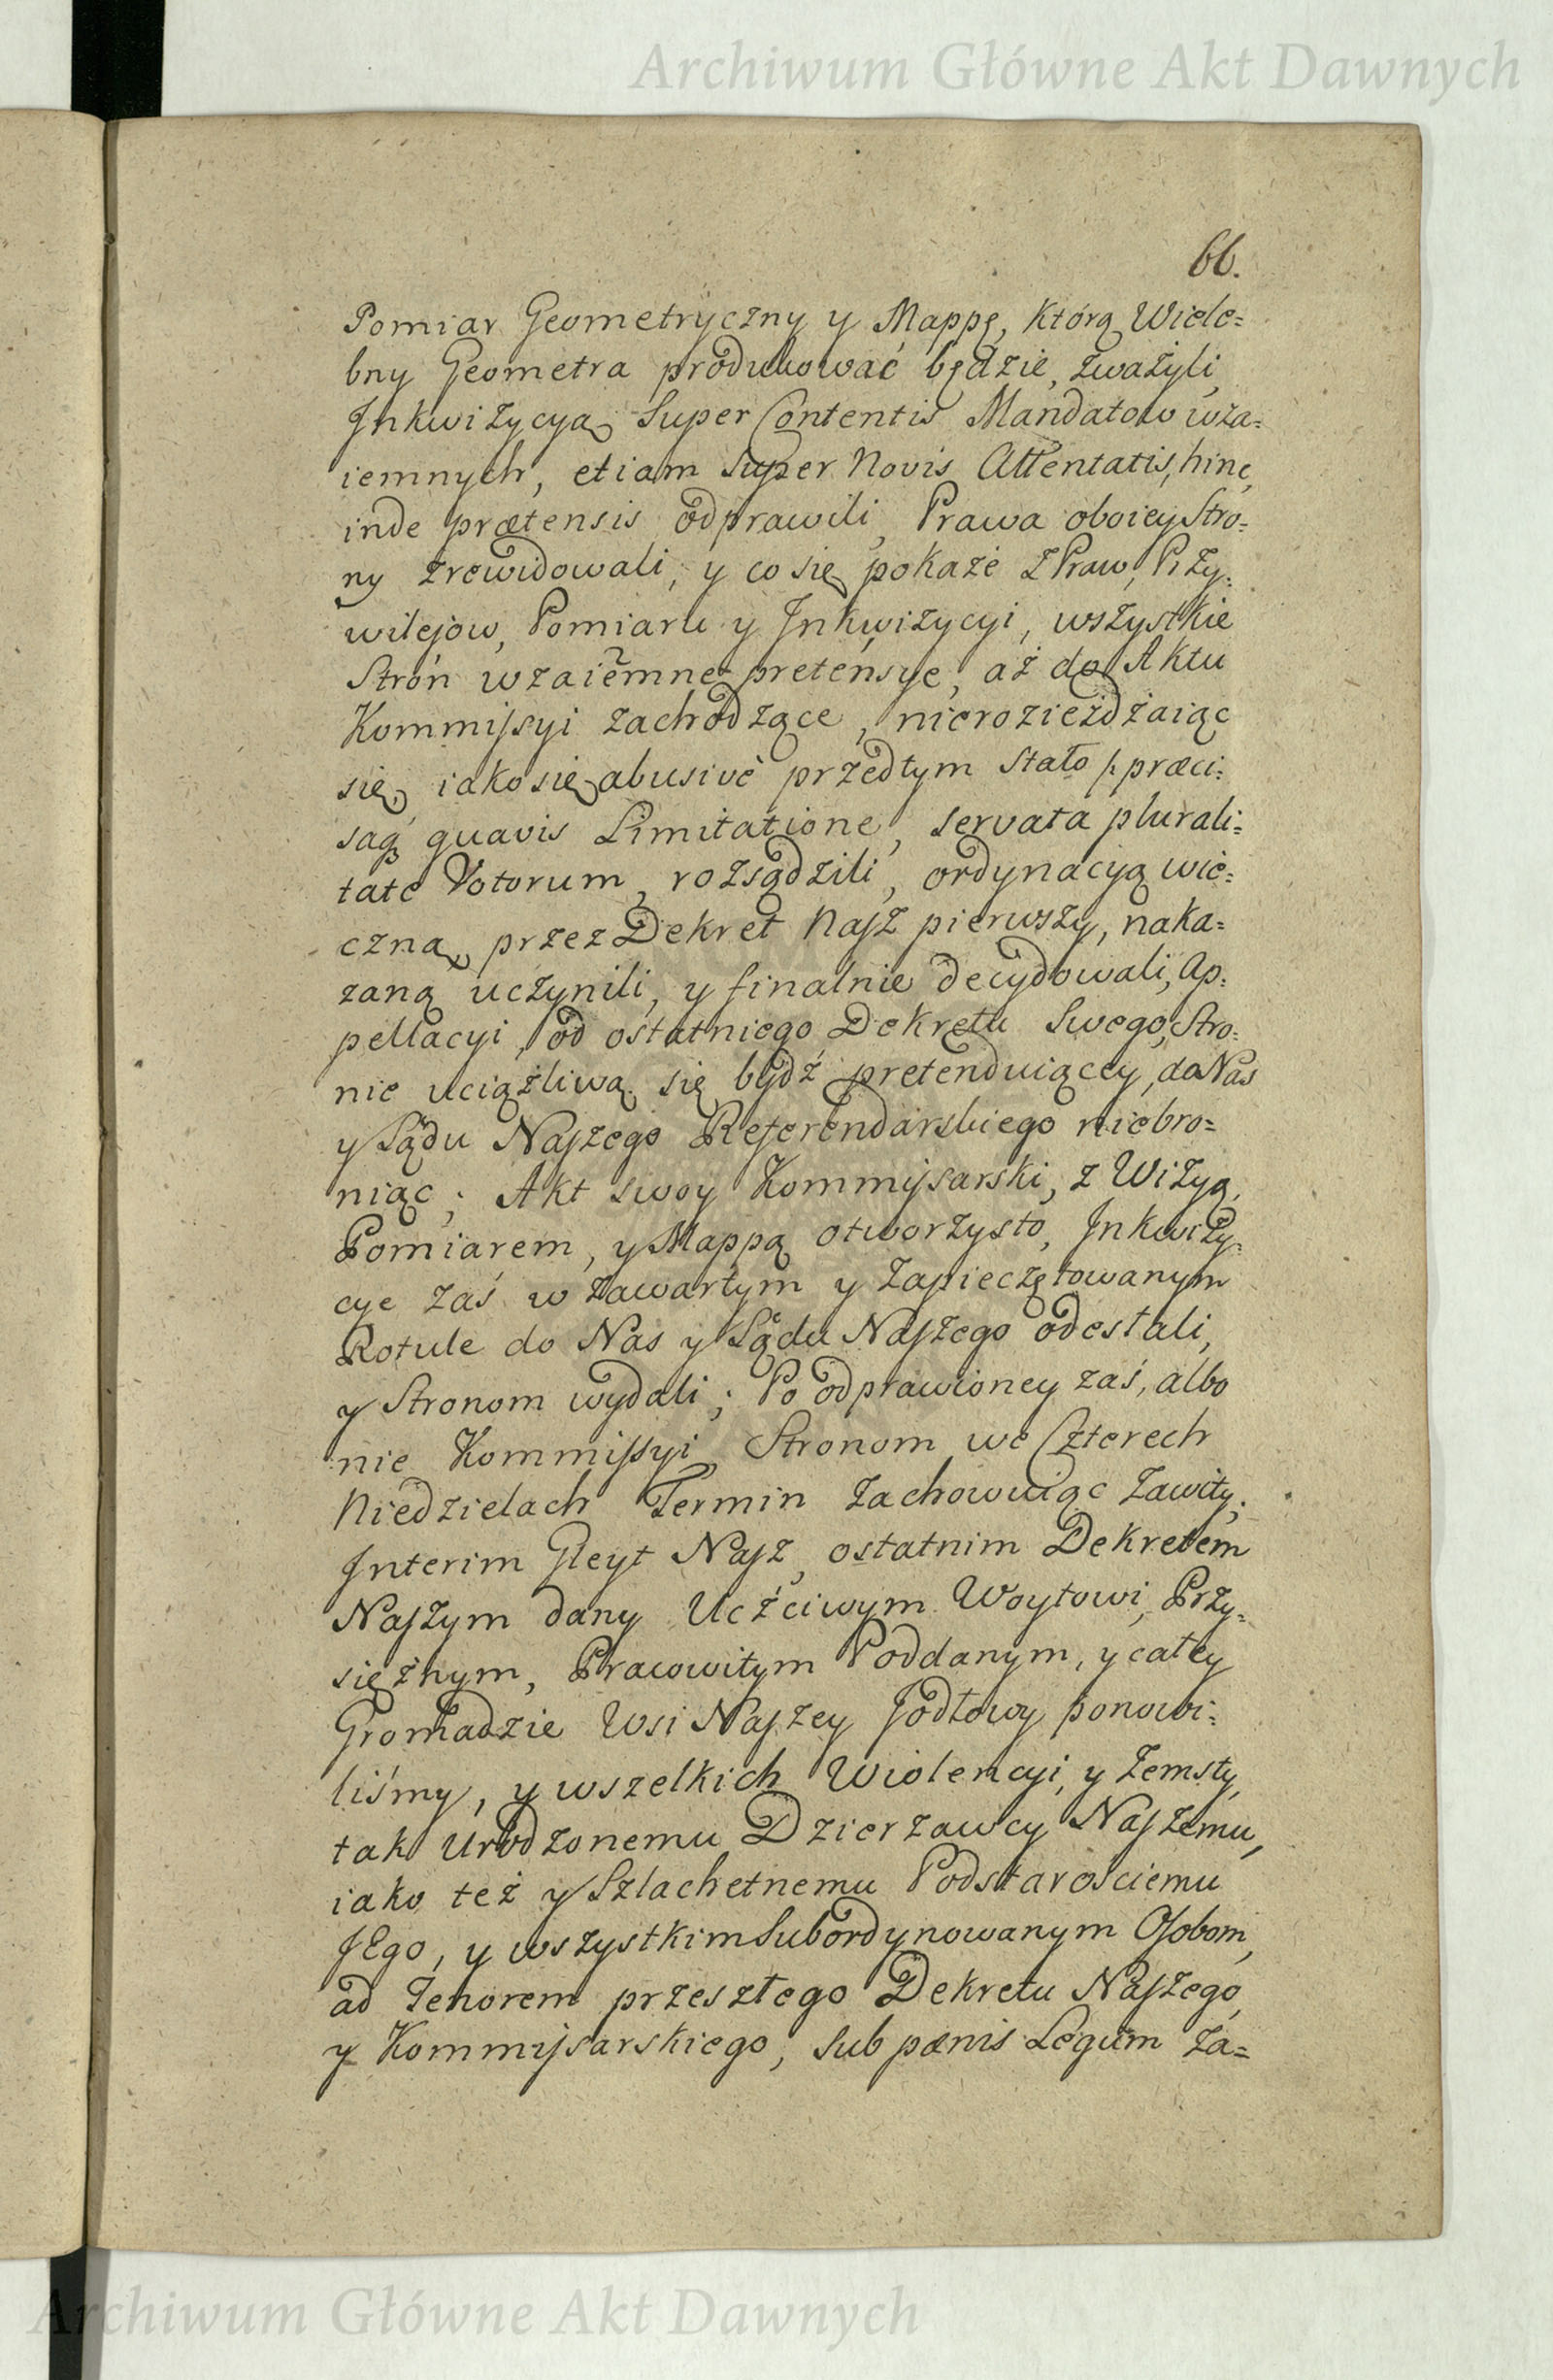 Archiwum Główne Akt Dawnych
66.
Pomiar Geometryczny y Mappę, którą Wiele=
bny Geometra produkować będzie, zważyli,
Inkwizycyą Super Contentis Mandatow wza=
iemnych, etiam super Novis Attentatis, hinc,
inde prætensis odprawili, Prawa oboiey Stro=
ny zrewidowali, y co się pokaże z Praw, Przy=
wilejow, Pomiaru y Inkwizycyi, wszystkie
Stron wzaiemne pretensye, aż do Aktu
Kommissyi zachodzące, nierozieżdżaiąc
się, iako się abusivè przedtym stało /: præci=
saq3 quavis Limitatione, servata plurali=
tate Votorum, rozsądzili, ordynacyą wie=
czną, przez Dekret Nasz pierwszy, naka=
zaną uczynili, y finalnie decydowali, Ap=
pellacyi, od ostatniego Dekretu Swego, Stro=
nie uciążliwą się bydź pretenduiącey, do Nas
y Sądu Naszego Referendarskiego niebro=
niąc; Akt swoy Kommissarski, z Wizyą,
Pomiarem, y Mappą otworzysto, Inkwizy=
cye zaś w zawartym y zapieczętowanym
Rotule do Nas y Sądu Naszego odesłali,
y Stronom wydali; Po odprawioney zaś, albo
nie Kommissyi, Stronom we Czterech
Niedzielach Termin zachowuiąc zawity;
Interim Gleyt Nasz, ostatnim Dekretem
Naszym dany Uczciwym Woytowi, Przy=
siężnym, Pracowitym Poddanym, y całey
Gromadzie Wsi Naszey Jodłowy ponowi=
liśmy, y wszelkich Wiolencyi, y Zemsty,
tak Urodzonemu Dzierzawcy Naszemu,
iako też y Szlachetnemu Podstarościemu
JEgo, y wszystkim Subordynowanym Osobom,
ad Tenorem przeszłego Dekretu Naszego,
y Kommissarskiego, sub pænis Legum za=
Archiwum Główne Akt Dawnych